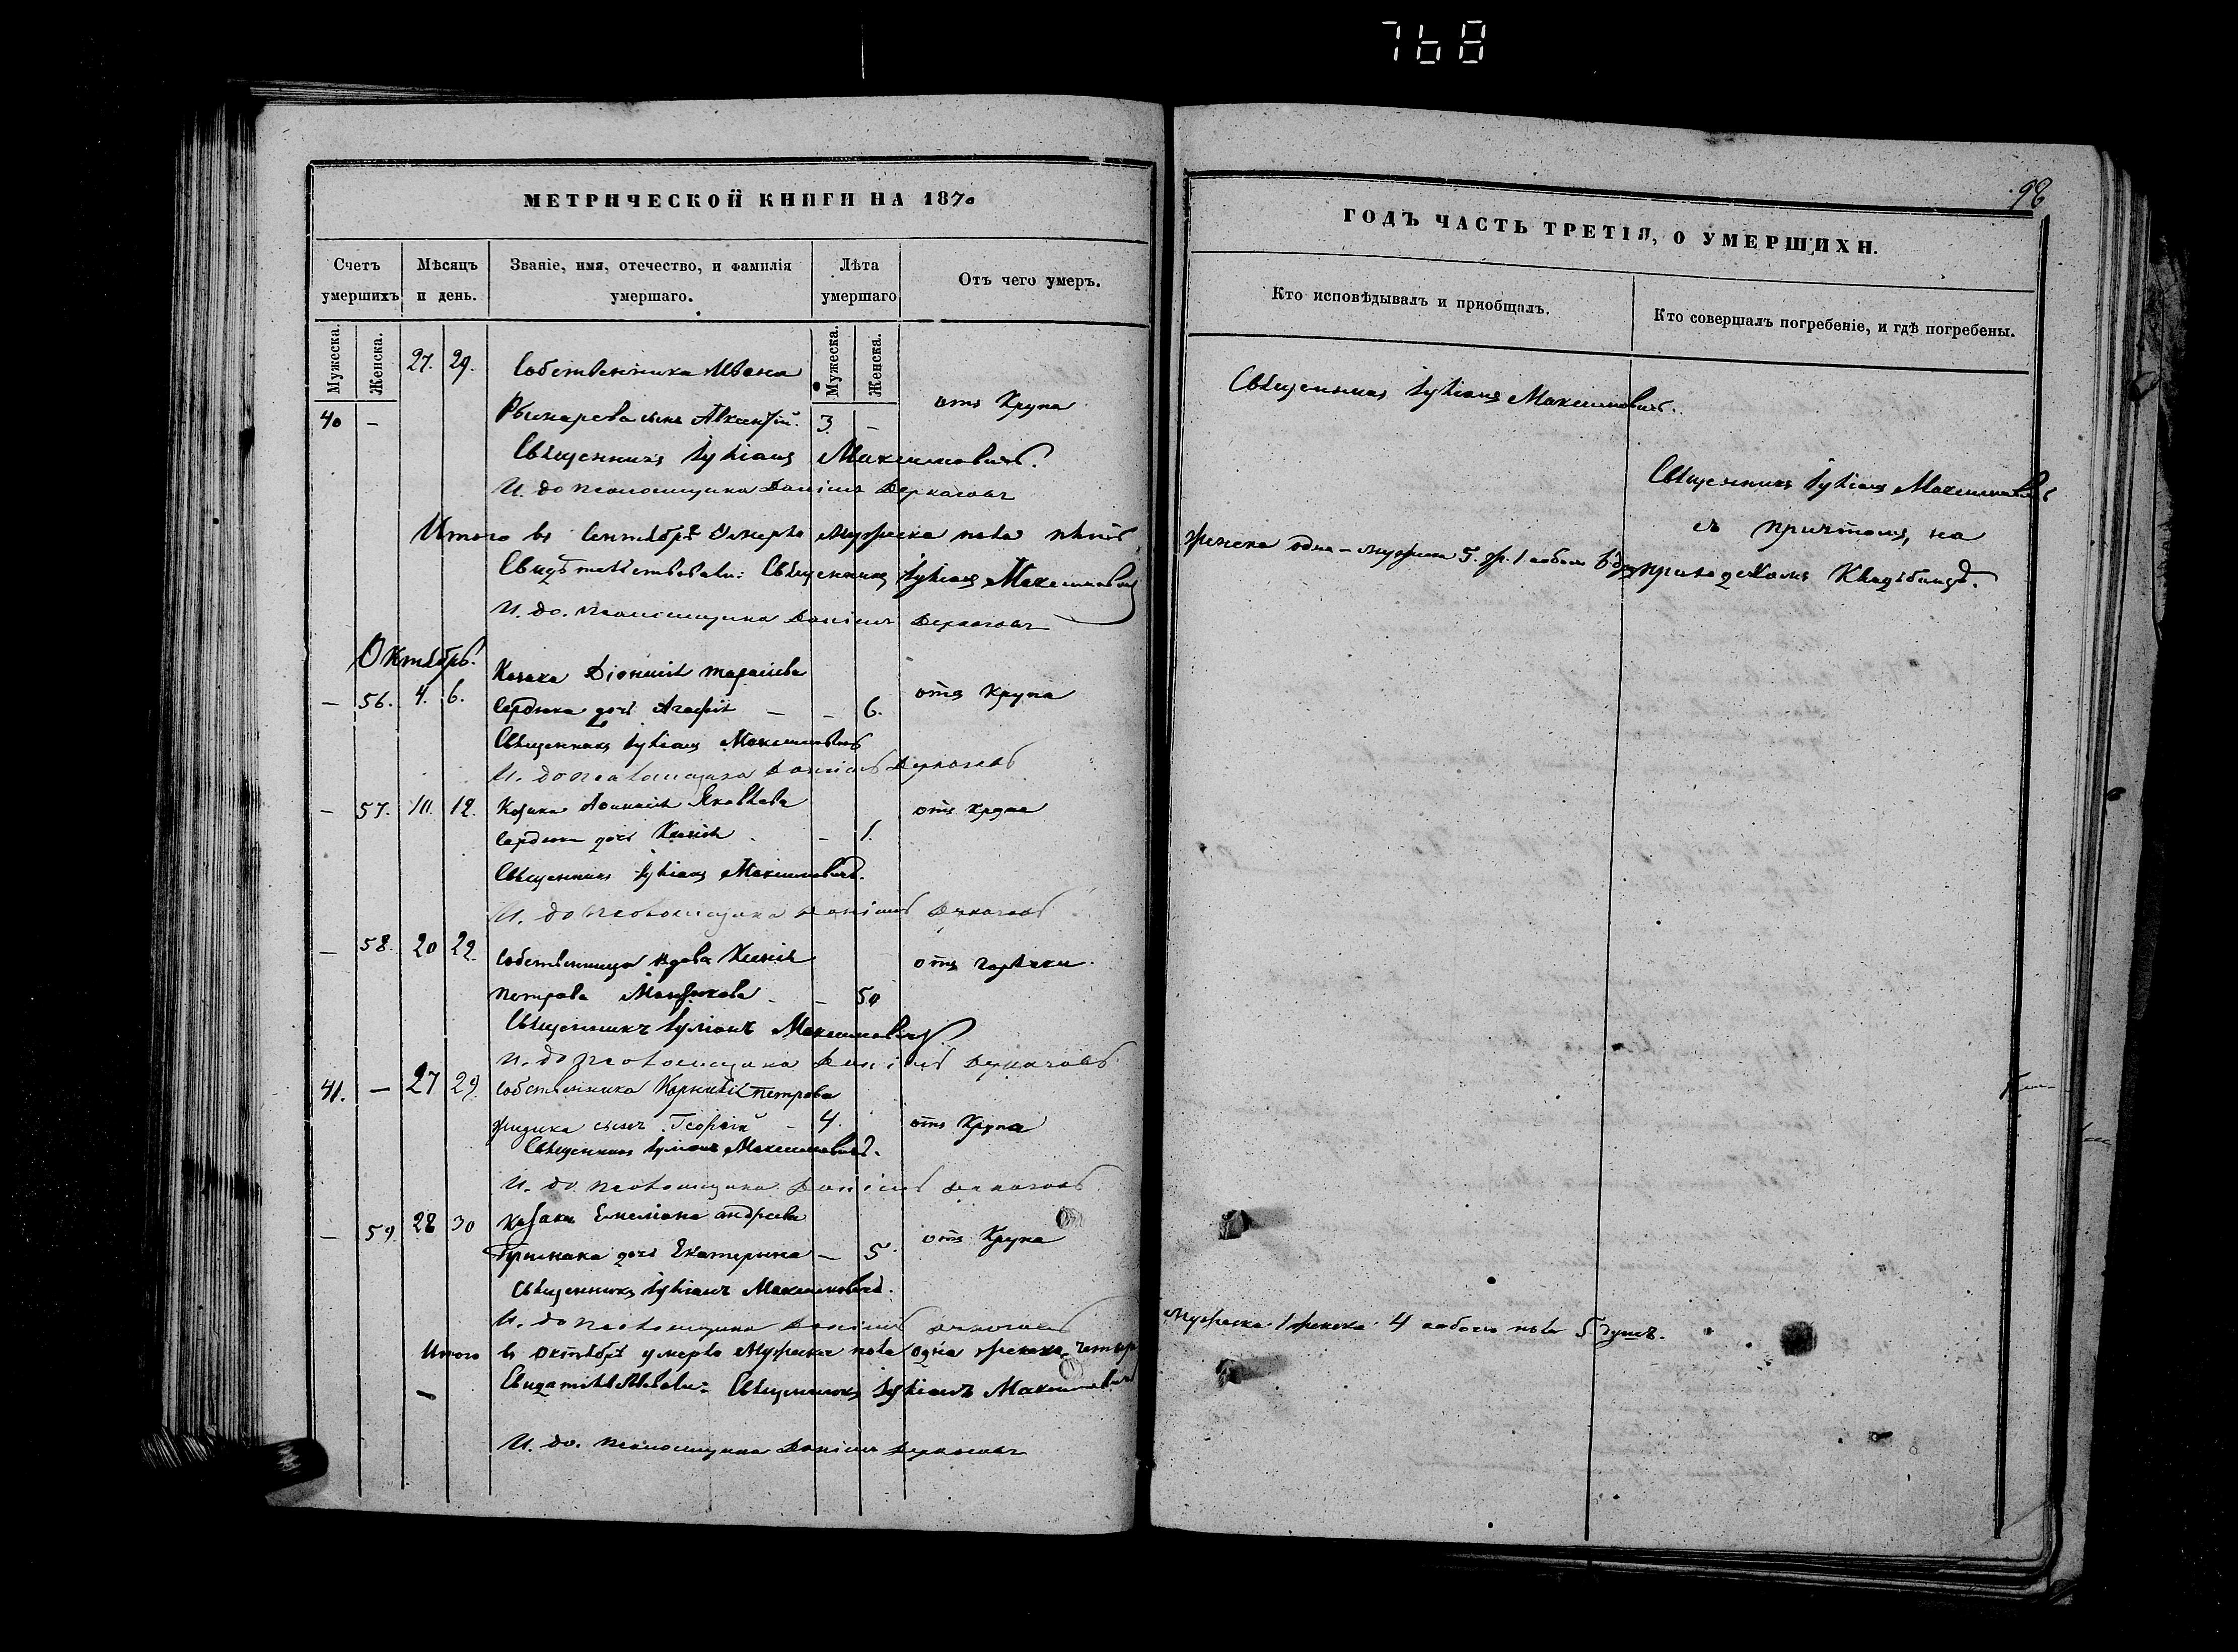 768
МЕТРИЧЕСКОЙ КНИГИ НА 1870
Счетъ умершихъ
Мѣсяцъ и день.
Званіе, имя, отечество, и фамилія умершаго.
Лѣта умершаго
Отъ чего умеръ.
Мужеска.
Женска.
Мужеска.
Женска.
27. 29. Собственника Ивана
отъ Крупа
40 – сынъ 3. –
Священникъ Іуліанъ Максимовичъ.
И. до псаломщика Даніилъ Деркачовъ
Итого въ Сентябрѣ умерло мужеска пола пять
Свидѣтельствовали: Священникъ Іуліанъ Максимовичъ
И. до. псаломщика Даніилъ Деркачовъ
Октябрь.
Козака Діонисія Тарасіева
– 56. 4. 6. Сердюка дочь Агафія – – 6. отъ Крупа
Священникъ Іуліанъ Максимовичъ
И. до псаломщика Даніилъ Деркачовъ
– 57. 10. 12. Козака Яковлева отъ крупа
Сердюка дочь Ксенія – 1.
Священникъ Іуліанъ Максимовичъ.
И. до псаломщика Даніилъ Деркачовъ
– 58. 20 22. Собственница вдова Ксенія отъ горячки.
Петрова – – 50
Священникъ Іуліанъ Максимовичъ
И. до псаломщика Даніилъ Деркачовъ
41. – 27 29. Собственника Корнилія Петрова
сынъ Георгій – 4. отъ Крупа
Священникъ Іуліанъ Максимовичъ.
И. до псаломщика Даніилъ Деркачовъ
– 59. 28 30 Козака Емеліана Андреева
дочь Екатерина – 5. отъ Крупа
Священникъ Іуліанъ Максимовичъ.
И. до псаломщика Даніилъ Деркачовъ
Итого въ Октябрѣ умерло мужеска пола одна женска четыр
Свидѣтельствовали: Священникъ Іуліанъ Максимовичъ
И. до. псаломщика Даніилъ Деркачовъ
98
ГОДЪ ЧАСТЬ ТРЕТІЯ, О УМЕРШИХЪ.
Кто исповѣдывалъ и приобщалъ.
Кто совершалъ погребеніе, и гдѣ погребены.
Священникъ Іуліанъ Максимовичъ.
Священникъ Іуліанъ Максимовичъ
съ причтомъ, на
женска одна – мужеска 5. ж. 1 обоего 6
приходскомъ Кладбищѣ.
мужеска 1 женска 4 обоего пола 5 душъ.